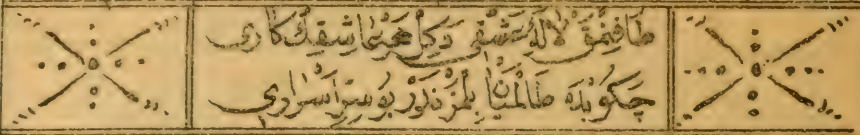 طاقنمق لاله عشقى دكل هجر عاشقك كارى
چكوبده طالمين بلمز ندر بو سر اسرارى